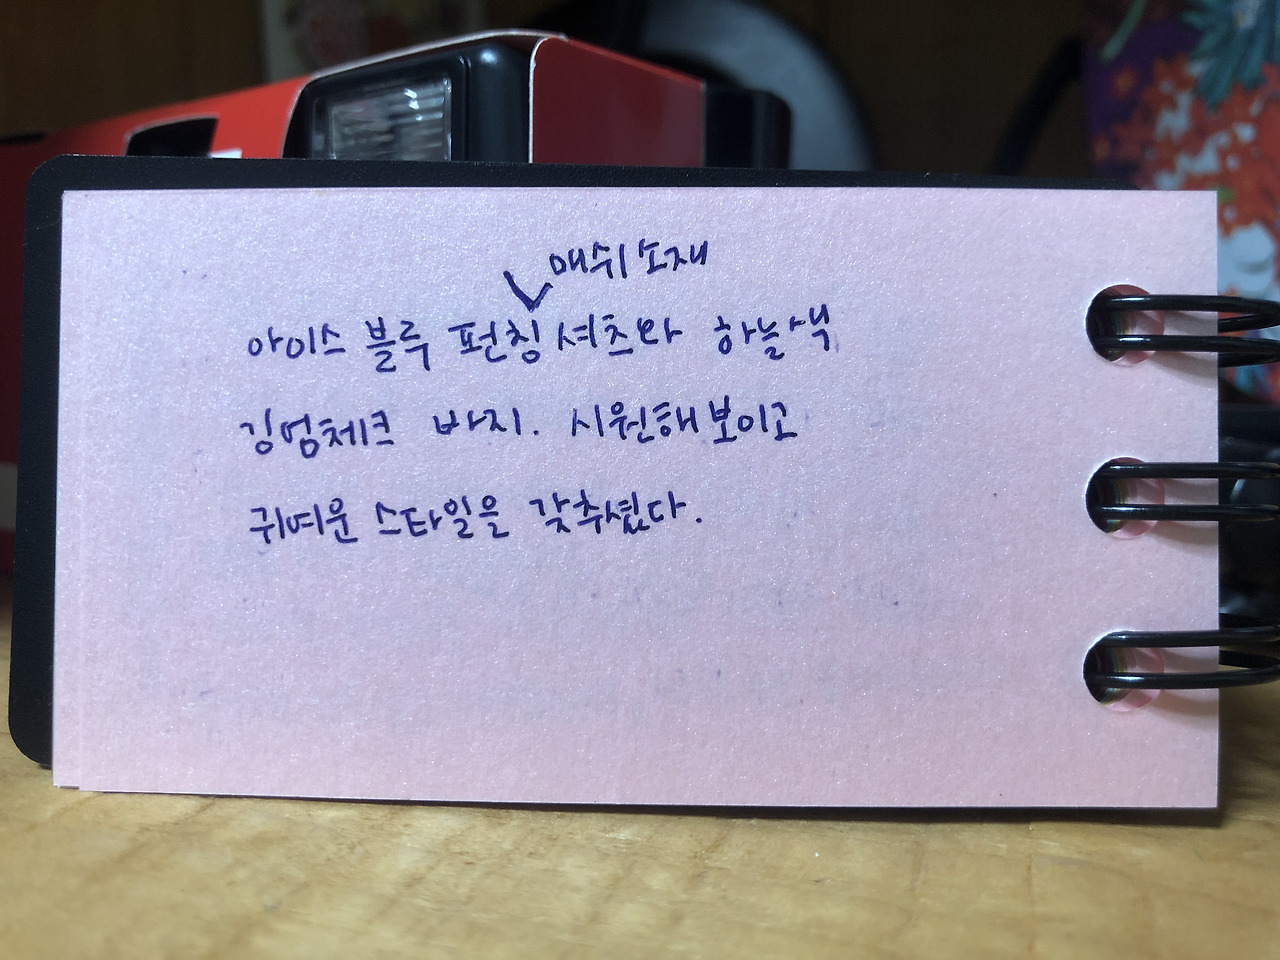 매쉬 소재
아이스 블루 펀칭 셔츠와 하늘색
깅엄체크 바지. 시원해 보이고
귀여운 스타일을 갖추셨다.